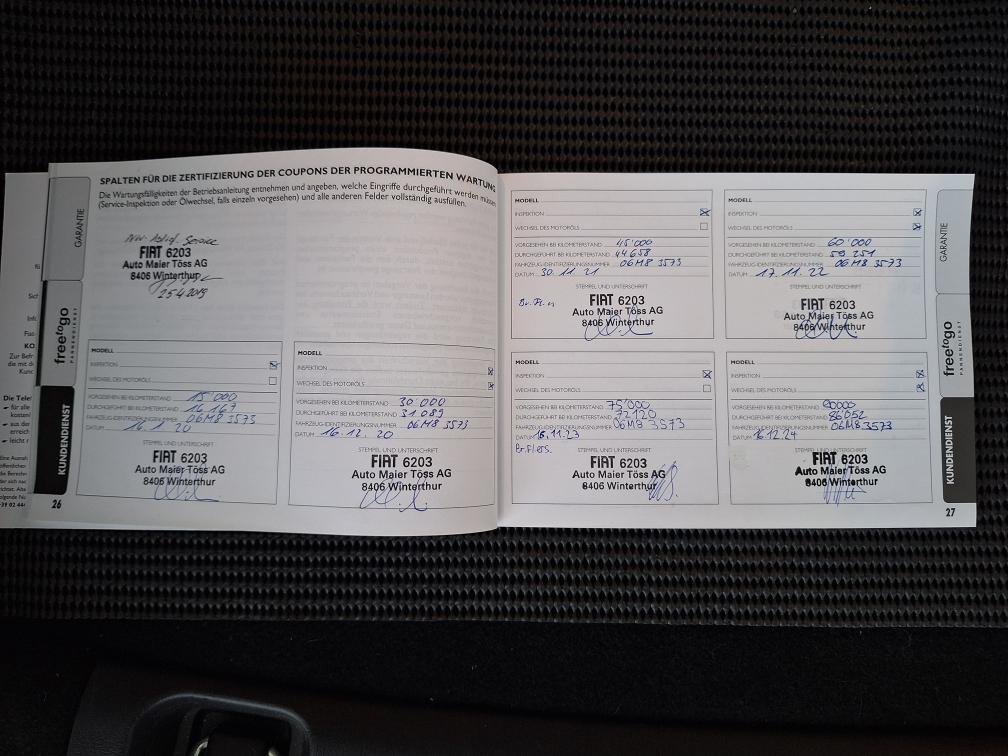 SPALTEN FÜR DIE ZERTIFIZIERUNG DER COUPONS DER PROGRAMMIERTEN WARTUNG
Die Wartungsfälligkeiten der Betriebsanleitung entnehmen und angeben, welche Eingriffe durchgeführt werden müssen
(Service-Inspektion oder Ölwechsel, falls einzeln vorgesehen) und alle anderen Felder vollständig ausfüllen.
GARANTIE
freetogo
PANNENDIENST
KUNDENDIENST
Service
FIAT 6203
Auto Maier Töss AG
8406 Winterthur
25.4.2019
MODELL
INSPEKTION
WECHSEL DES MOTORÖLS
VORGESEHEN BEI KILOMETERSTAND 15'000
DURCHGEFÜHRT BEI KILOMETERSTAND 16'167
FAHRZEUGIDENTIFIZIERUNGSNUMMER 06M8 3573
DATUM 16.1.20
STEMPEL UND UNTERSCHRIFT
FIAT 6203
Auto Maier Töss AG
8406 Winterthur
26
MODELL
INSPEKTION
WECHSEL DES MOTORÖLS
VORGESEHEN BEI KILOMETERSTAND 30'000
DURCHGEFÜHRT BEI KILOMETERSTAND 31'089
FAHRZEUGIDENTIFIZIERUNGSNUMMER 06M8 3573
DATUM 16.12.20
STEMPEL UND UNTERSCHRIFT
FIAT 6203
Auto Maier Töss AG
8406 Winterthur
MODELL
INSPEKTION
WECHSEL DES MOTORÖLS
VORGESEHEN BEI KILOMETERSTAND 45'000
DURCHGEFÜHRT BEI KILOMETERSTAND 44'658
FAHRZEUGIDENTIFIZIERUNGSNUMMER 06M8 3573
DATUM 30.11.21
STEMPEL UND UNTERSCHRIFT
FIAT 6203
Auto Maier Töss AG
8406 Winterthur
MODELL
INSPEKTION
WECHSEL DES MOTORÖLS
VORGESEHEN BEI KILOMETERSTAND 60'000
DURCHGEFÜHRT BEI KILOMETERSTAND 59'251
FAHRZEUGIDENTIFIZIERUNGSNUMMER 06M8 3573
DATUM 17.11.22
STEMPEL UND UNTERSCHRIFT
FIAT 6203
Auto Maier Töss AG
8406 Winterthur
MODELL
INSPEKTION
WECHSEL DES MOTORÖLS
VORGESEHEN BEI KILOMETERSTAND 75'000
DURCHGEFÜHRT BEI KILOMETERSTAND 72'120
FAHRZEUGIDENTIFIZIERUNGSNUMMER 06M8 3573
DATUM
Br.Fl ers.
STEMPEL UND UNTERSCHRIFT
FIAT 6203
Auto Maier Töss AG
8406 Winterthur
MODELL
INSPEKTION
WECHSEL DES MOTORÖLS
VORGESEHEN BEI KILOMETERSTAND 90000
DURCHGEFÜHRT BEI KILOMETERSTAND 86'052
FAHRZEUGIDENTIFIZIERUNGSNUMMER 06M8 3573
DATUM 16.12.24
STEMPEL UND UNTERSCHRIFT
FIAT 6203
Auto Maier Töss AG
8406 Winterthur
GARANTIE
freetogo
PANNENDIENST
KUNDENDIENST
27